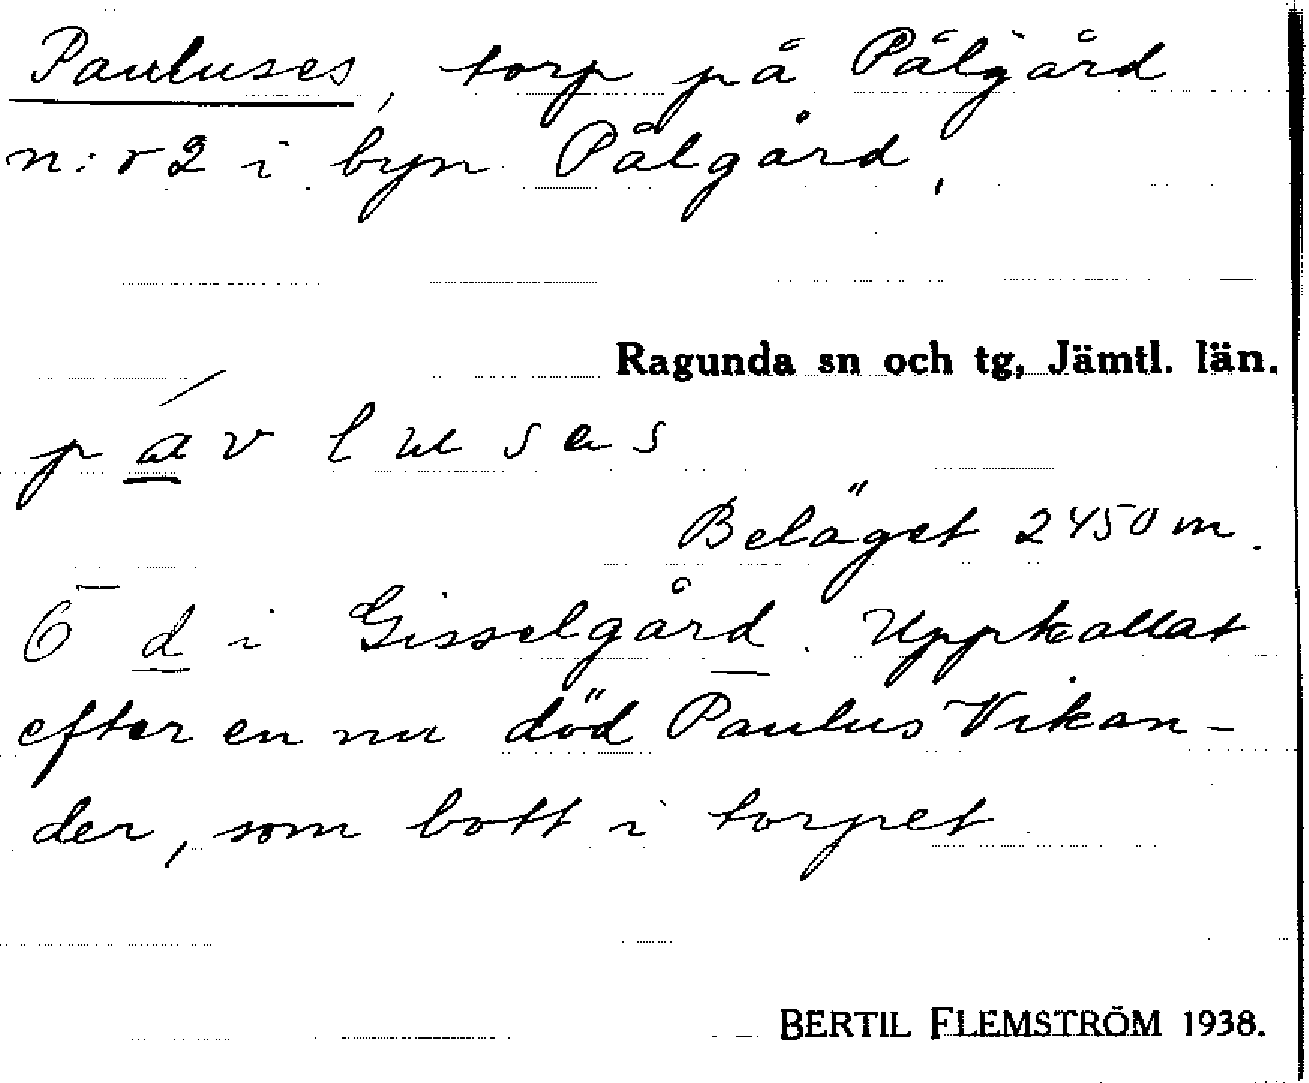 Pauluses, torp på Pålgård
n:r 2 i byn Pålgård,
Ragunda sn och tg, Jämtl. län.
páv luses
Beläget 2450 m.
Ö d i Gisselgård. Uppkallat
efter en nu död Paulus Vikan-
der, som bott i torpet
BERTIL FLEMSTRÖM 1938.